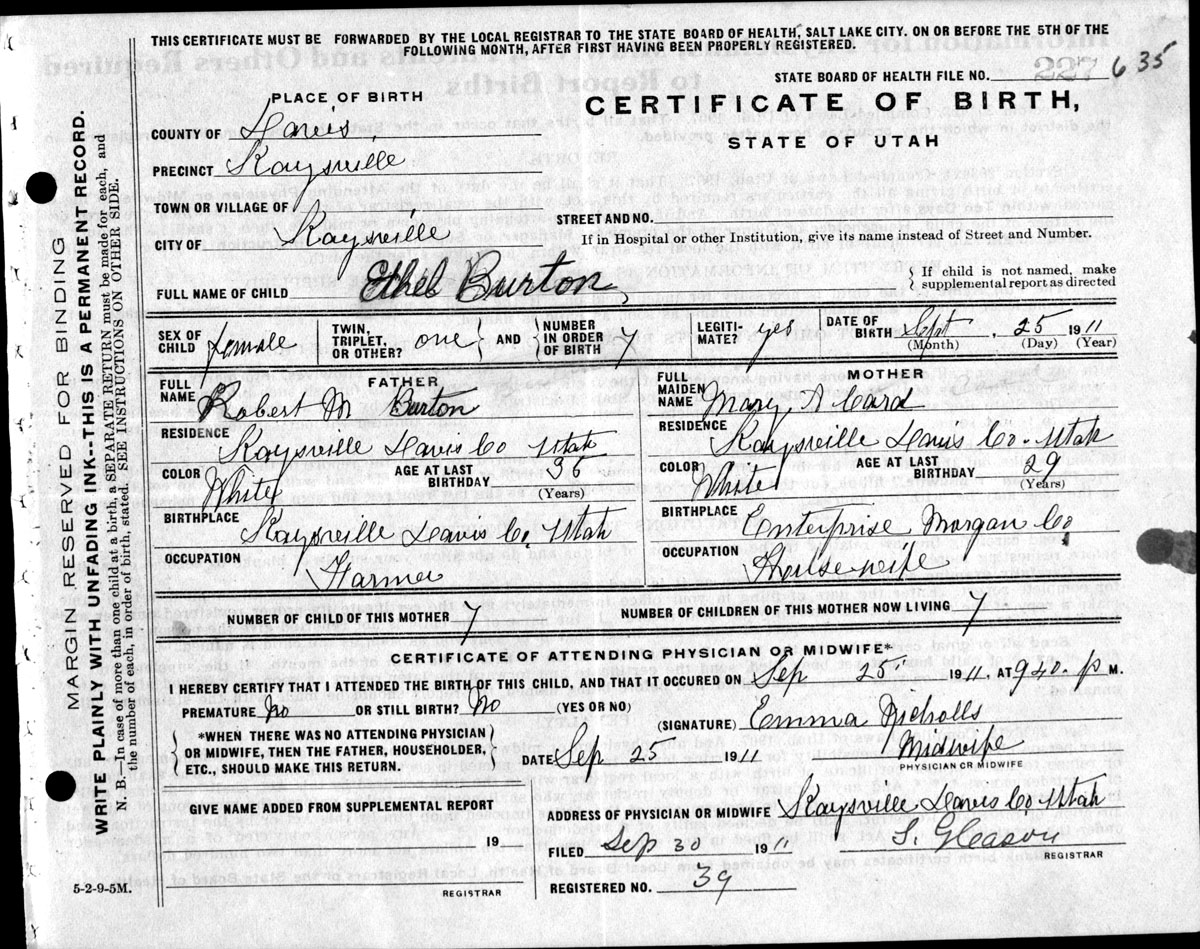 THIS CERTIFICATE MUST BE FORWARDED BY THE LOCAL REGISTRAR TO THE STATE BOARD OF HEALTH, SALT LAKE CITY. ON OR BEFORE THE 5TH OF THE
FOLLOWING MONTH, AFTER FIRST HAVING BEEN PROPERLY REGISTERED.
STATE BOARD OF HEALTH FILE NO. 227 635
PLACE OF BIRTH
CERTIFICATE OF BIRTH,
STATE OF UTAH
COUNTY OF Davis
PRECINCT Kaysville
TOWN OR VILLAGE OF
STREET AND NO.
CITY OF Kaysville
If in Hospital or other Institution, give its name instead of Street and Number.
FULL NAME OF CHILD Ethel Burton
If child is not named, make
supplemental report as directed
SEX OF CHILD female TWIN, TRIPLET, OR OTHER? one AND NUMBER IN ORDER OF BIRTH 7 LEGITI-MATE? yes DATE OF BIRTH Sept. 25 1911
(Month) (Day) (Year)
FATHER MOTHER
FULL NAME Robert M Burton FULL MAIDEN NAME Mary A Card
RESIDENCE Kaysville Davis Co Utah RESIDENCE Kaysville Davis Co. Utah
COLOR White AGE AT LAST BIRTHDAY 36 (Years) COLOR White AGE AT LAST BIRTHDAY 29 (Years)
BIRTHPLACE Kaysville Davis Co, Utah BIRTHPLACE Enterprise, Morgan Co
OCCUPATION Farmer OCCUPATION Housewife
NUMBER OF CHILD OF THIS MOTHER 7 NUMBER OF CHILDREN OF THIS MOTHER NOW LIVING 7
CERTIFICATE OF ATTENDING PHYSICIAN OR MIDWIFE*
I HEREBY CERTIFY THAT I ATTENDED THE BIRTH OF THIS CHILD, AND THAT IT OCCURED ON Sep 25 1911, AT 940. P M.
PREMATURE No OR STILL BIRTH? No (YES OR NO)
(SIGNATURE) Emma Nicholls
*WHEN THERE WAS NO ATTENDING PHYSICIAN
OR MIDWIFE, THEN THE FATHER, HOUSEHOLDER,
ETC., SHOULD MAKE THIS RETURN.
DATE Sep 25 1911 Midwife
PHYSICIAN OR MIDWIFE
GIVE NAME ADDED FROM SUPPLEMENTAL REPORT
19
REGISTRAR
ADDRESS OF PHYSICIAN OR MIDWIFE Kaysville Davis Co Utah
FILED Sep 30 1911 S. Gleason
REGISTRAR
REGISTERED NO. 39
5-2-9-5M.
MARGIN RESERVED FOR BINDING
WRITE PLAINLY WITH UNFADING INK--THIS IS A PERMANENT RECORD.
N. B.—In case of more than one child at a birth, a SEPARATE RETURN must be made for each, and
the number of each, in order of birth, stated. SEE INSTRUCTIONS ON OTHER SIDE.